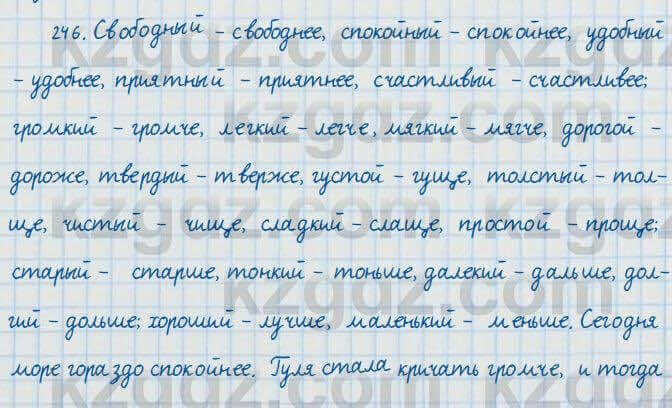 246. Свободный - свободнее, спокойный - спокойнее, удобный
- удобнее, приятный - приятнее, счастливый - счастливее;
громкий - громче, легкий - легче, мягкий - мягче, дорогой -
дороже, твердый - тверже, густой - гуще, толстый - тол-
ще, чистый - чище, сладкий - слаще, простой - проще;
старый - старше, тонкий - тоньше, далекий - дальше, дол-
гий - дольше; хороший - лучше, маленький - меньше. Сегодня
море гораздо спокойнее. Гуля стала кричать громче, и тогда